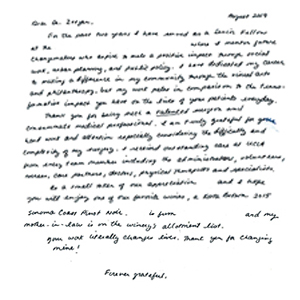 August 2019
Dear Dr.
For the past two years I have served as a Senior Fellow
at the where I mentor future
changemakers who aspire to make a positive impact through social
work, urban planning, and public policy. I have dedicated my career
to making a difference in my community through the visual arts
and philanthropy, but my work pales in comparison to the trans-
formative impact you have on the lives of your patients everyday.
Thank you for being such a talented surgeon and
consummate medical professional. I am truly grateful for your
hard work and attention especially considering the difficulty and
complexity of my surgery. I received outstanding care at UCLA
from every team member including the administrators, volunteers,
nurses, care partners, doctors, physical therapists and specialists.
As a small token of our appreciation and I hope
you will enjoy one of our favorite wines, a 2015
Sonoma Coast Pinot Noir. is from and my
mother-in-law is on the winery's allotment list.
Your work literally changes lives. Thank you for changing
mine!
Forever grateful,